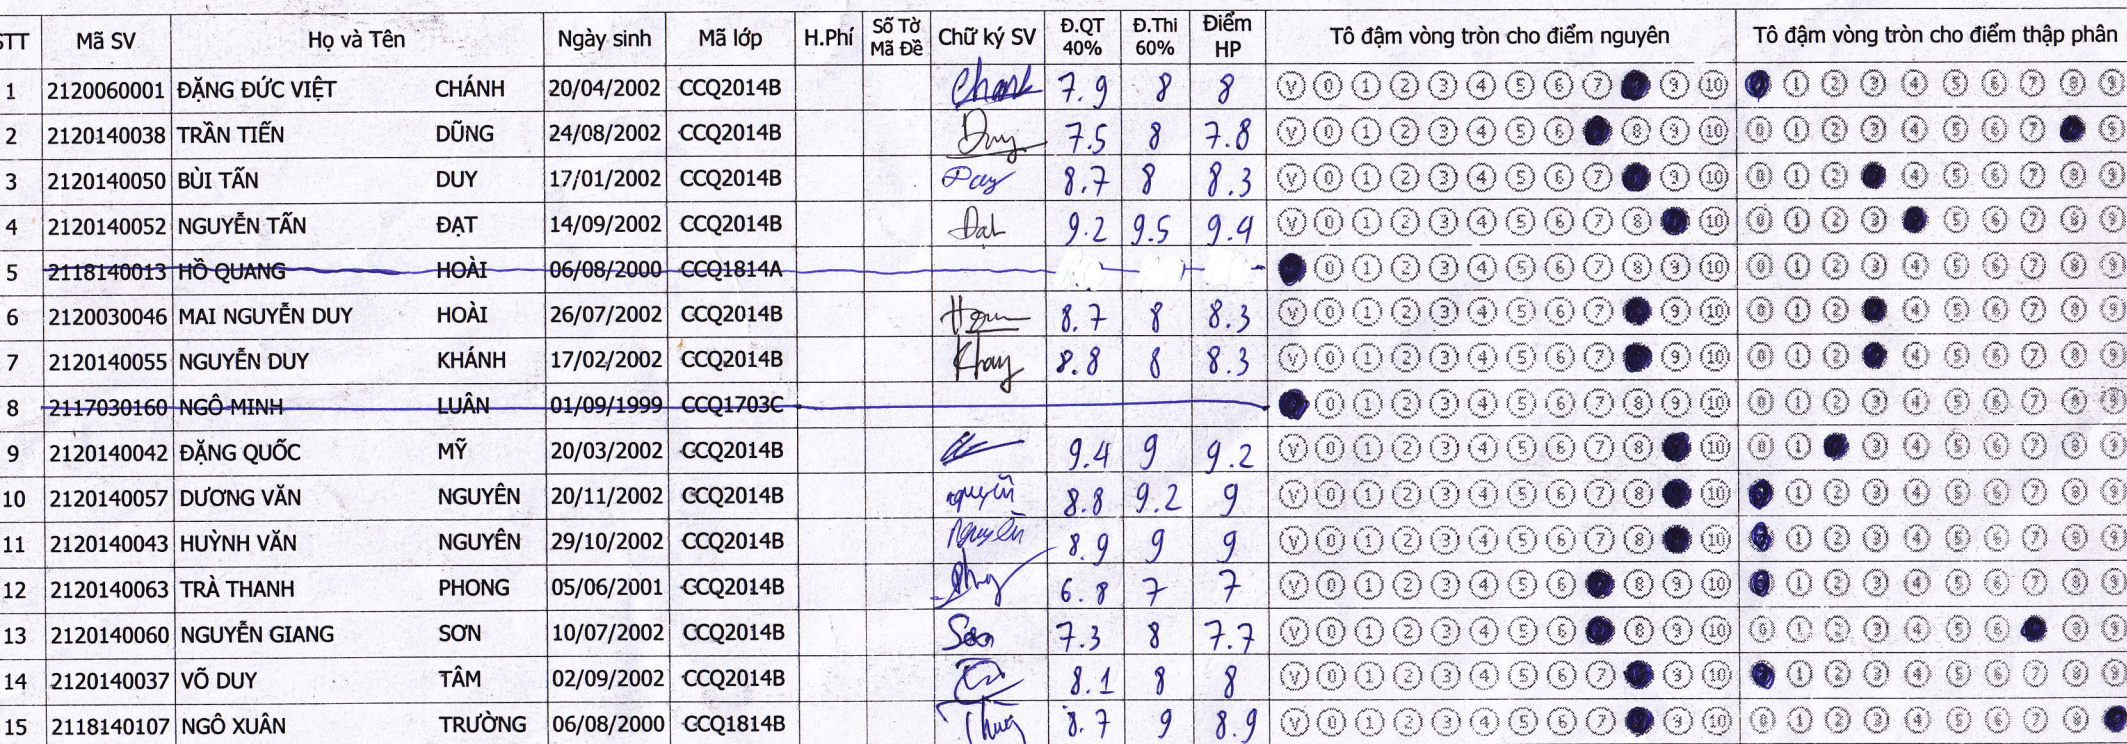 STT Mã SV Họ và Tên Ngày sinh Mã lớp H.Phí Số Tờ Mã Đề Chữ ký SV Đ.QT 40% Đ.Thi 60% Điểm HP Tô đậm vòng tròn cho điểm nguyên Tô đậm vòng tròn cho điểm thập phân
1 2120060001 ĐẶNG ĐỨC VIỆT CHÁNH 20/04/2002 CCQ2014B Chanh 7.9 8 8 V 0 1 2 3 4 5 6 7 9 10 1 2 3 4 5 6 7 8 9
2 2120140038 TRẦN TIẾN DŨNG 24/08/2002 CCQ2014B 7.5 8 7.8 V 0 1 2 3 4 5 6 8 9 10 0 1 2 3 4 5 6 7 9
3 2120140050 BÙI TẤN DUY 17/01/2002 CCQ2014B Duy 8.7 8 8.3 V 0 1 2 3 4 5 6 7 9 10 0 1 2 4 5 6 7 8 9
4 2120140052 NGUYỄN TẤN ĐẠT 14/09/2002 CCQ2014B Đạt 9.2 9.5 9.4 V 0 1 2 3 4 5 6 7 8 10 0 1 2 3 5 6 7 8 9
5 2118140013 HỒ QUANG HOÀI 06/08/2000 CCQ1814A 0 1 2 3 4 5 6 7 8 9 10 0 1 2 3 4 5 6 7 8 9
6 2120030046 MAI NGUYỄN DUY HOÀI 26/07/2002 CCQ2014B 8.7 8 8.3 V 0 1 2 3 4 5 6 7 9 10 0 1 2 4 5 6 7 8 9
7 2120140055 NGUYỄN DUY KHÁNH 17/02/2002 CCQ2014B 8.8 8 8.3 V 0 1 2 3 4 5 6 7 9 10 0 1 2 4 5 6 7 8 9
8 2117030160 NGÔ MINH LUÂN 01/09/1999 CCQ1703C 0 1 2 3 4 5 6 7 8 9 10 0 1 2 3 4 5 6 7 8 9
9 2120140042 ĐẶNG QUỐC MỸ 20/03/2002 CCQ2014B 9.4 9 9.2 V 0 1 2 3 4 5 6 7 8 10 0 1 3 4 5 6 7 8 9
10 2120140057 DƯƠNG VĂN NGUYÊN 20/11/2002 CCQ2014B 8.8 9.2 9 V 0 1 2 3 4 5 6 7 8 10 1 2 3 4 5 6 7 8 9
11 2120140043 HUỲNH VĂN NGUYÊN 29/10/2002 CCQ2014B 8.9 9 9 V 0 1 2 3 4 5 6 7 8 10 1 2 3 4 5 6 7 8 9
12 2120140063 TRÀ THANH PHONG 05/06/2001 CCQ2014B 6.8 7 7 V 0 1 2 3 4 5 6 8 9 10 1 2 3 4 5 6 7 8 9
13 2120140060 NGUYỄN GIANG SƠN 10/07/2002 CCQ2014B 7.3 8 7.7 V 0 1 2 3 4 5 6 8 9 10 0 1 2 3 4 5 6 8 9
14 2120140037 VÕ DUY TÂM 02/09/2002 CCQ2014B 8.1 8 8 V 0 1 2 3 4 5 6 7 9 10 1 2 3 4 5 6 7 8 9
15 2118140107 NGÔ XUÂN TRƯỜNG 06/08/2000 CCQ1814B 8.7 9 8.9 V 0 1 2 3 4 5 6 7 9 10 0 1 2 3 4 5 6 7 8